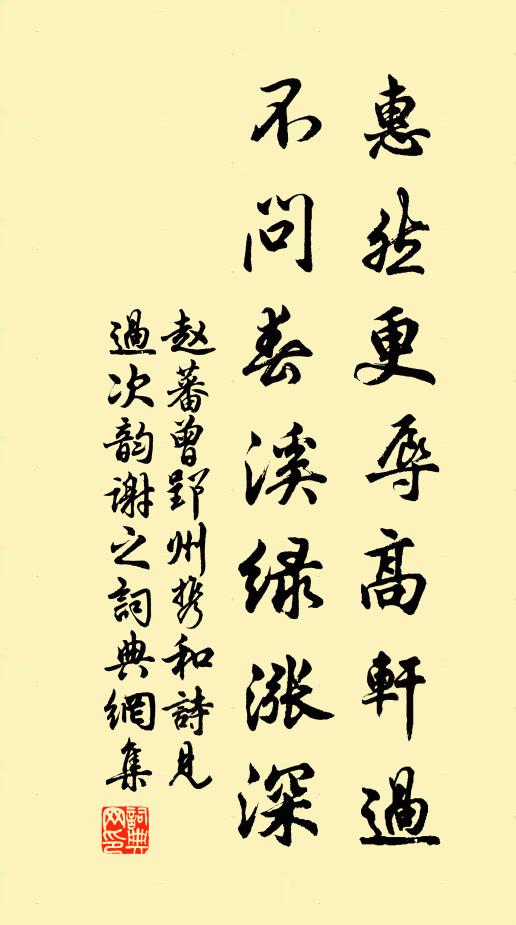 惠然更辱高軒過
不問春溪綠漲深
赵蕃曾郢州携和詩見
過次韵谢之詞典網集
詞典網印